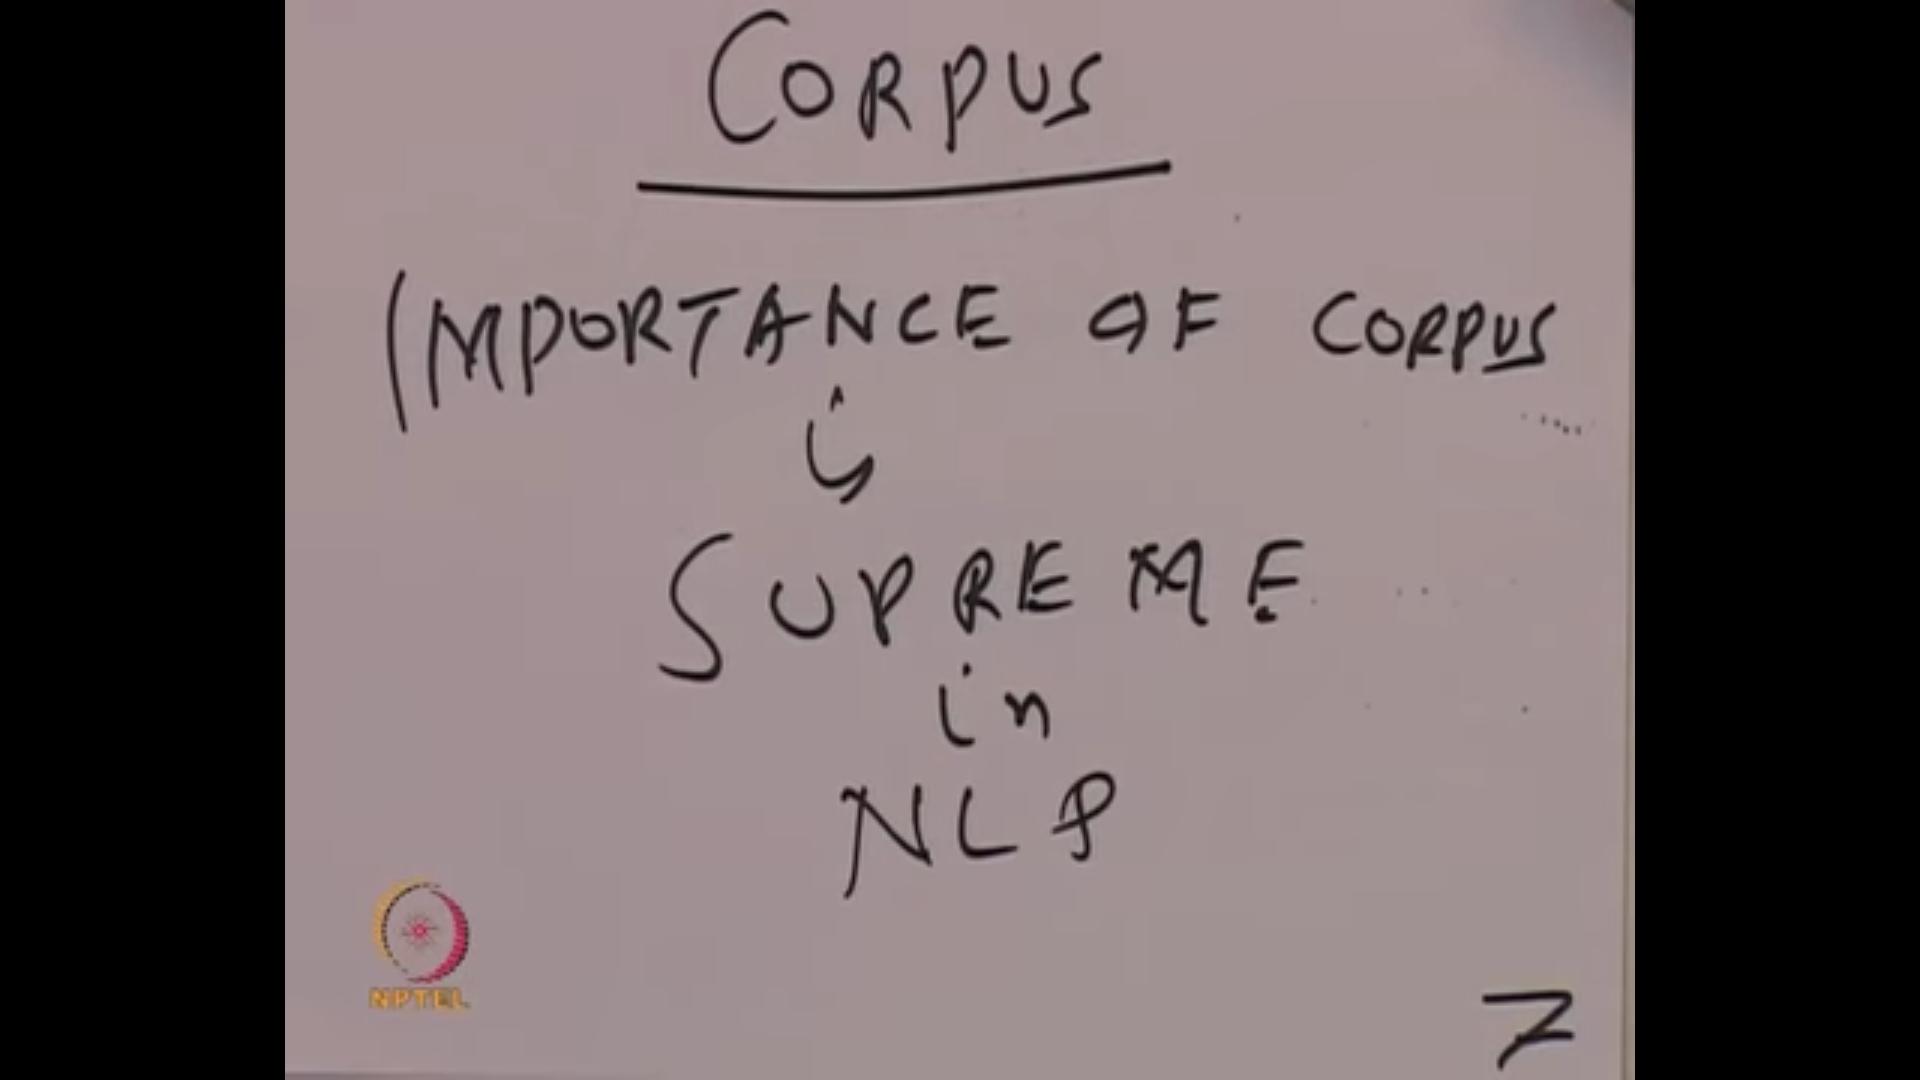 CORPUS
IMPORTANCE OF CORPUS
is
SUPREME
in
NLP
NPTEL
7